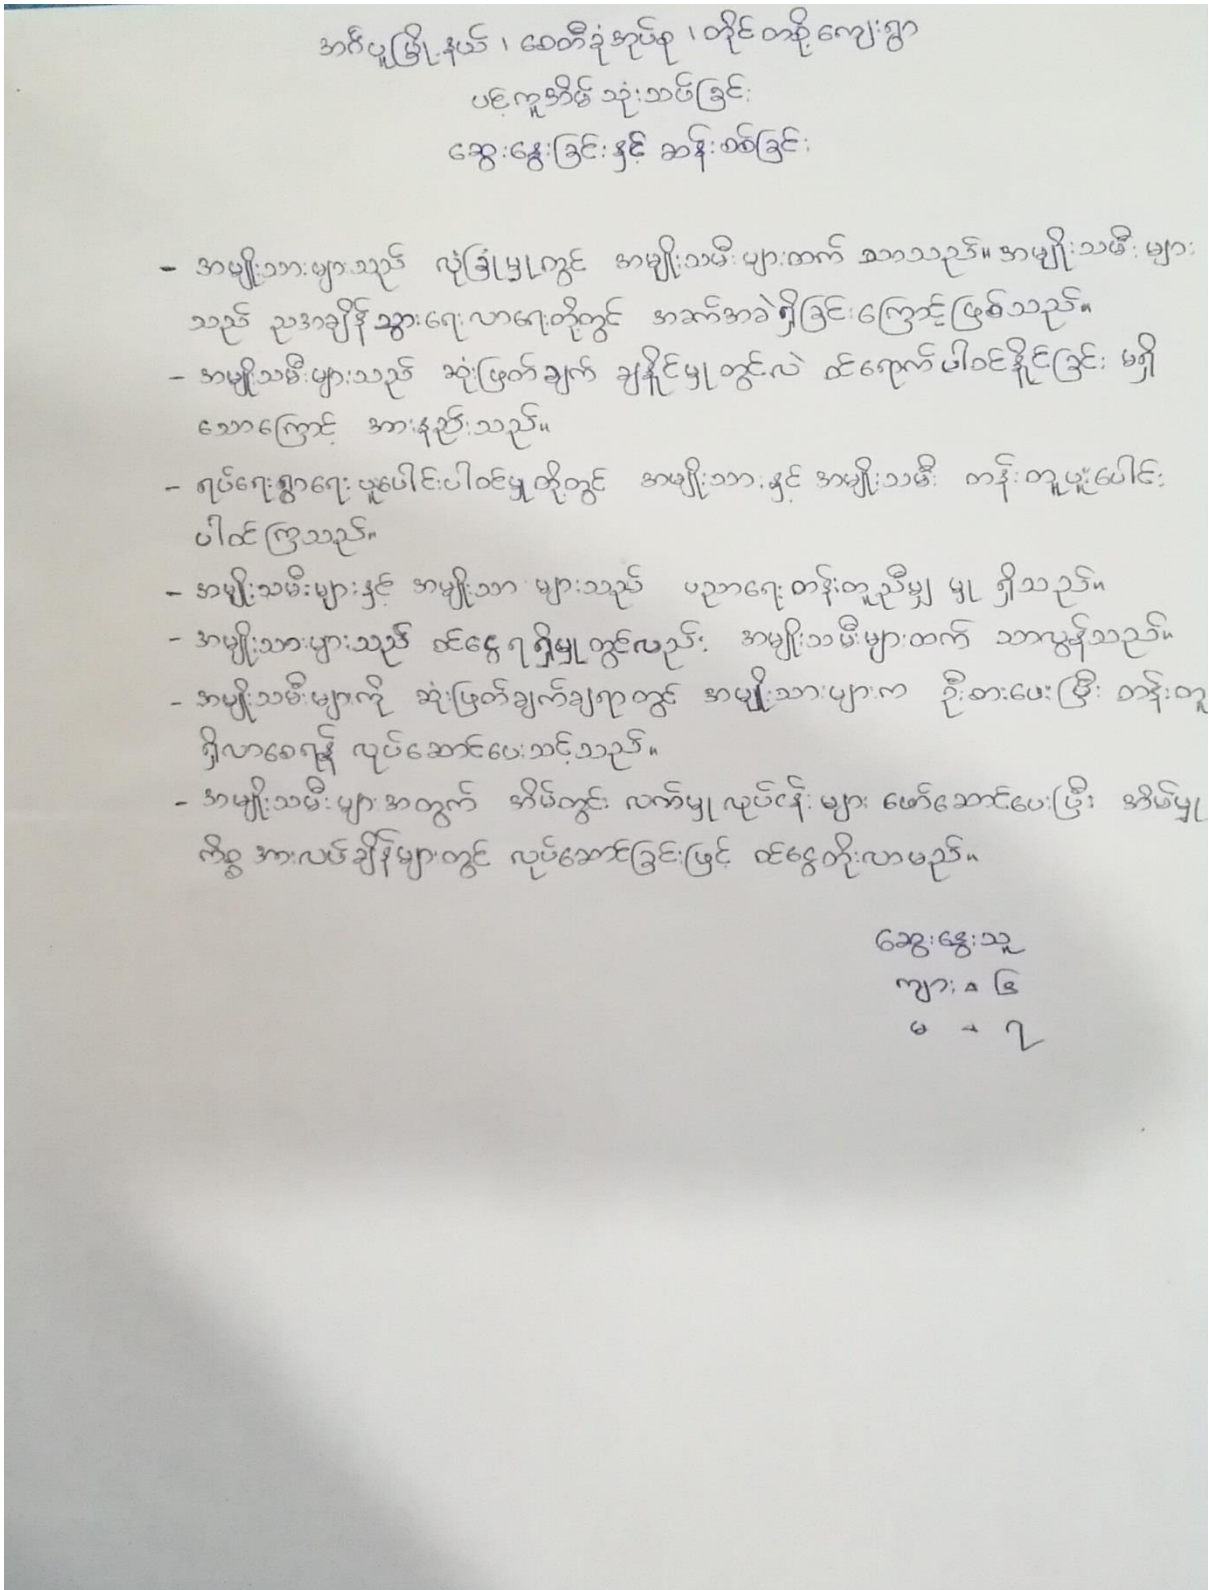 အင်္ဂပူမြို့နယ်၊ စေတီခုံအုပ်စု၊ တိုင်တစို့ကျေးရွာ
ပင့်ကူအိမ်သုံးသပ်ခြင်း
ဆွေးနွေးခြင်းနှင့် ဆန်းစစ်ခြင်း
- အမျိုးသားများသည် လုံခြုံမှုတွင် အမျိုးသမီးများထက် သာသည်။ အမျိုးသမီးများ
သည် ညအချိန်သွားရေးလာရေးတို့တွင် အခက်အခဲရှိခြင်းကြောင့်ဖြစ်သည်။
- အမျိုးသမီးများသည် ဆုံးဖြတ်ချက် ချနိုင်မှုတွင်လဲ ဝင်ရောက်ပါဝင်နိုင်ခြင်း မရှိ
သောကြောင့် အားနည်းသည်။
- ရပ်ရေးရွာရေးပူးပေါင်းပါဝင်မှုတို့တွင် အမျိုးသားနှင့် အမျိုးသမီး တန်းတူပူးပေါင်း
ပါဝင်ကြသည်။
- အမျိုးသမီးများနှင့် အမျိုးသားများသည် ပညာရေးတန်းတူညီမျှမှု ရှိသည်။
- အမျိုးသားများသည် ဝင်ငွေရရှိမှုတွင်လည်း အမျိုးသမီးများထက် သာလွန်သည်။
- အမျိုးသမီးများကို ဆုံးဖြတ်ချက်ချရာတွင် အမျိုးသားများက ဦးစားပေးပြီး တန်းတူ
ရှိလာစေရန် လုပ်ဆောင်ပေးသင့်သည်။
- အမျိုးသမီးများအတွက် အိမ်တွင်း လက်မှုလုပ်ငန်းများ ဖော်ဆောင်ပေးပြီး အိမ်မှု
ကိစ္စ အားလပ်ချိန်များတွင် လုပ်ဆောင်ခြင်းဖြင့် ဝင်ငွေတိုးလာမည်။
ဆွေးနွေးသူ
ကျား - ၆
မ - ၇